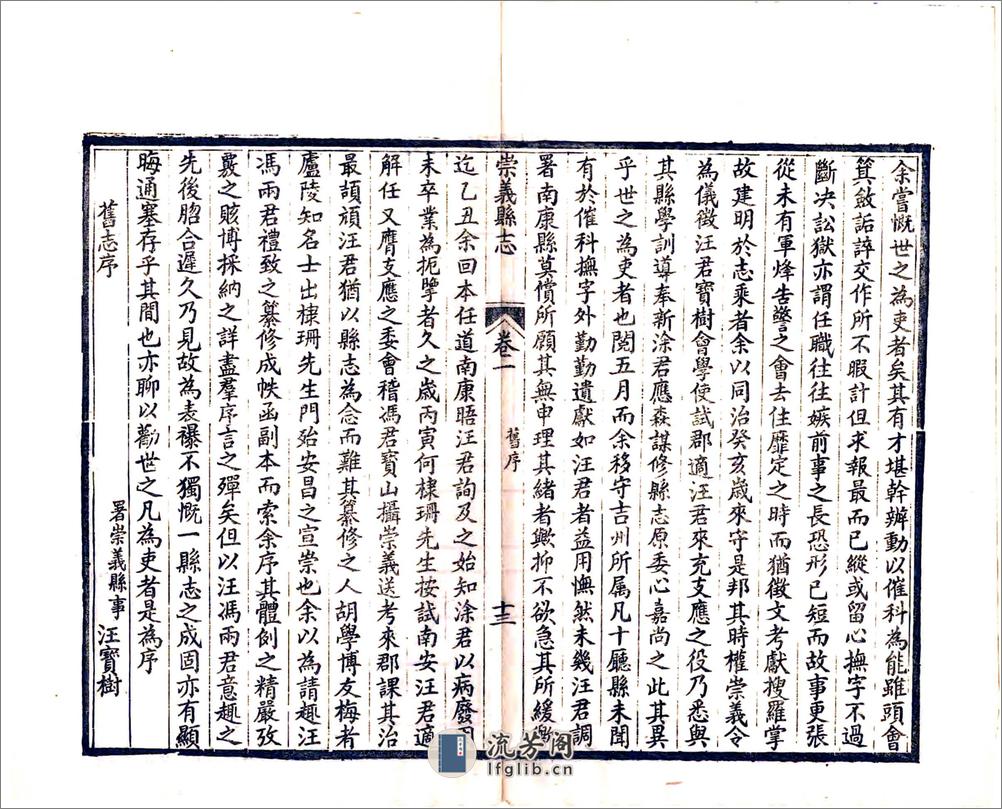 余嘗慨世之為吏者矣其有才堪幹辦動以催科為能雖頭會
箕斂詬誶交作所不暇計但求報最而已縱或留心撫字不過
斷決訟獄亦謂任職往往嫉前事之長恐形已短而故事更張
從未有軍烽告警之會去住靡定之時而猶徵文考獻搜羅掌
故建明於志乘者余以同治癸亥歲來守是邦其時權崇義令
為儀徵汪君寶樹會學使試郡適汪君來充支應之役乃悉與
其縣學訓導奉新涂君應森謀修縣志原委心嘉尚之此其異
乎世之為吏者也閱五月而余移守吉州所属凡十廳縣未聞
有於催科撫字外勤勤遺獻如汪君者益用憮然未幾汪君調
署南康縣莫償所願其無申理其緒者歟抑不欲急其所緩
崇義縣志
卷二
舊序
十三
迄乙丑余回本任道南康晤汪君詢及之始知涂君以病廢
未卒業為扼擥者久之歲丙寅何棣珊先生按試南安汪君適
解任又膺支應之委會稽馮君寶山攝崇義送考來郡課其治
最頡頏汪君猶以縣志為念而難其纂修之人胡學博友梅者
廬陵知名士出棣珊先生門殆安昌之宣崇也余以為請趣汪
馮兩君禮致之纂修成帙函副本而索余序其體例之精嚴攷
覈之賅博採納之詳盡羣序言之殫矣但以汪馮兩君意趣之
先後脗合遲久乃見故為表襮不獨慨一縣志之成固亦有顯
晦通塞存乎其間也亦聊以勸世之凡為吏者是為序
署崇義縣事汪寶樹
舊志序
流芳阁
lfglib.cn